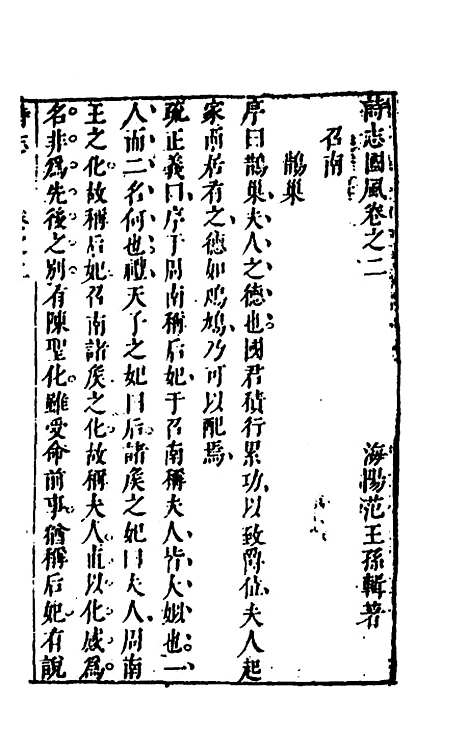 詩志國風卷之二
海陽范王孫輯著
召南
鵲巢
序曰鵲巢夫人之德也國君積行累功以致爵位夫人起
家而居有之德如鳲鳩乃可以配焉
疏正義曰序于周南稱后妃于召南稱夫人皆大姒也一
人而二名何也禮天子之妃曰后諸矦之妃曰夫人周南
王之化故稱后妃召南諸矦之化故稱夫人直以化感爲
名非爲先後之別有陳聖化雖受命前事猶稱后妃有說